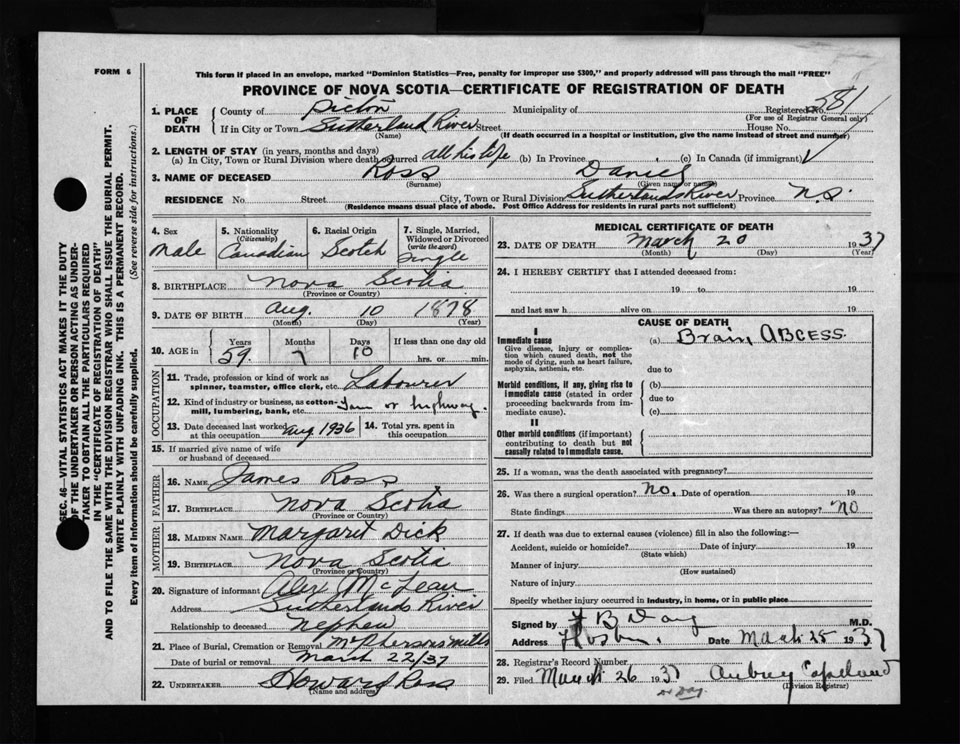 FORM 6
This form if placed in an envelope, marked "Dominion Statistics—Free, penalty for improper use $300," and properly addressed will pass through the mail "FREE"
PROVINCE OF NOVA SCOTIA—CERTIFICATE OF REGISTRATION OF DEATH
1. PLACE OF DEATH County of Pictou Municipality of Registered No. 581
(For use of Registrar General only)
If in City or Town Sutherland River Street House No.
(Name) (If death occurred in a hospital or institution, give the name instead of street and number)
2. LENGTH OF STAY (in years, months and days)
(a) In City, Town or Rural Division where death occurred all his life (b) In Province (c) In Canada (if immigrant)
3. NAME OF DECEASED Ross Daniel
(Surname) (Given name or names)
RESIDENCE No. Street City, Town or Rural Division Sutherlands River Province N.S.
(Residence means usual place of abode. Post Office Address for residents in rural parts not sufficient)
4. Sex Male
5. Nationality (Citizenship) Canadian
6. Racial Origin Scotch
7. Single, Married, Widowed or Divorced (write the word) Single
8. BIRTHPLACE Nova Scotia
(Province or Country)
9. DATE OF BIRTH Aug. 10 1878
(Month) (Day) (Year)
10. AGE in Years 59 Months 7 Days 10 If less than one day old hrs. or min.
OCCUPATION
11. Trade, profession or kind of work as spinner, teamster, office clerk, etc. Labourer
12. Kind of industry or business, as cotton-mill, lumbering, bank, etc. or highway.
13. Date deceased last worked at this occupation Aug 1936
14. Total yrs. spent in this occupation
15. If married give name of wife or husband of deceased
FATHER
16. NAME James Ross
17. BIRTHPLACE Nova Scotia
(Province or Country)
MOTHER
18. MAIDEN NAME Margaret Dick
19. BIRTHPLACE Nova Scotia
(Province or Country)
20. Signature of informant Alex McLean
Address Sutherlands River
Relationship to deceased Nephew
21. Place of Burial, Cremation or Removal McPhersons Mills
Date of burial or removal March 22/37
22. UNDERTAKER Howard Ross
(Name and address)
MEDICAL CERTIFICATE OF DEATH
23. DATE OF DEATH March 20 1937
(Month) (Day) (Year)
24. I HEREBY CERTIFY that I attended deceased from:
19 to 19
and last saw h alive on 19
CAUSE OF DEATH
I
Immediate cause (a) Brain Abcess.
Give disease, injury or complication which caused death, not the mode of dying, such as heart failure, asphyxia, asthenia, etc.
due to
Morbid conditions, if any, giving rise to immediate cause (stated in order proceeding backwards from immediate cause). (b)
due to
(c)
II
Other morbid conditions (if important) contributing to death but not causally related to immediate cause.
25. If a woman, was the death associated with pregnancy?
26. Was there a surgical operation? No. Date of operation 19
State findings Was there an autopsy? No
27. If death was due to external causes (violence) fill in also the following:—
Accident, suicide or homicide? Date of injury 19
(State which)
Manner of injury
(How sustained)
Nature of injury
Specify whether injury occurred in industry, in home, or in public place
Signed by Day M.D.
Address Date March 25 1937
28. Registrar's Record Number
29. Filed March 26 1937 Aubrey Copeland
(Division Registrar)
Dr Day.
SEC. 46—VITAL STATISTICS ACT MAKES IT THE DUTY
OF THE UNDERTAKER OR PERSON ACTING AS UNDER-
TAKER TO OBTAIN ALL THE PARTICULARS REQUIRED
IN THE "CERTIFICATE OF REGISTRATION OF DEATH"
AND TO FILE THE SAME WITH THE DIVISION REGISTRAR WHO SHALL ISSUE THE BURIAL PERMIT.
WRITE PLAINLY WITH UNFADING INK. THIS IS A PERMANENT RECORD.
Every item of information should be carefully supplied. (See reverse side for instructions.)